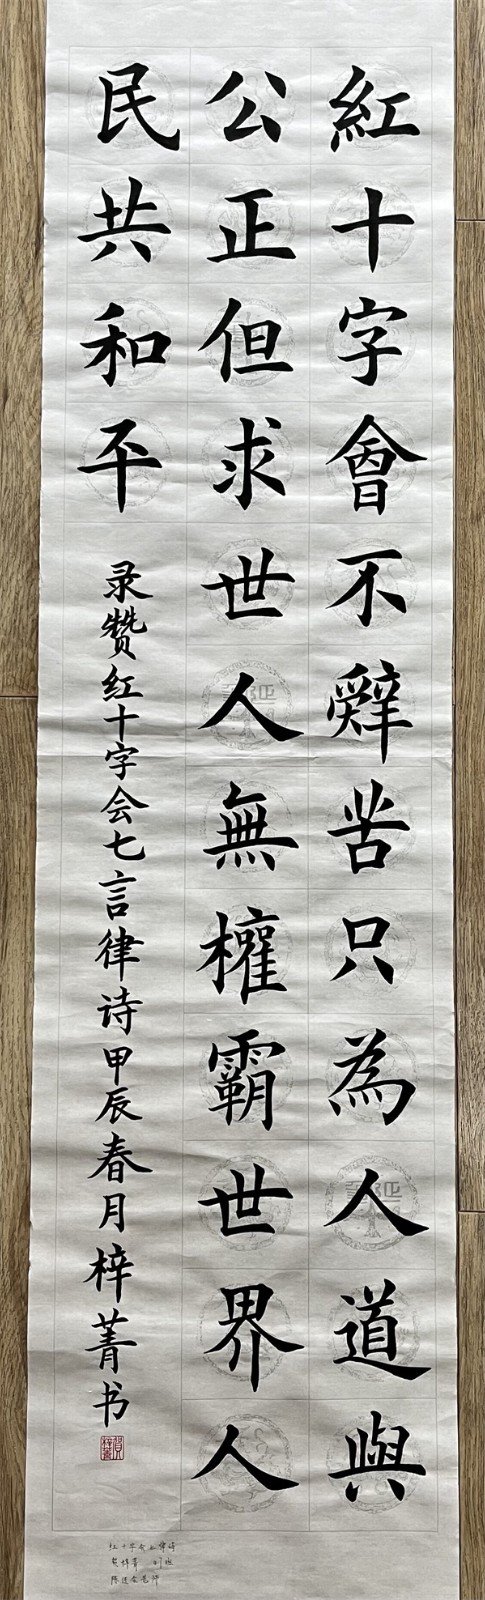 紅十字會不辤苦只為人道與
公正但求世人無權霸世界人
民共和平
录赞红十字会七言律诗甲辰春月梓菁书
賀梓菁
红十字会七律诗